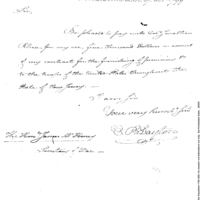 Sir,
Be pleased to pay unto Col. Jonathan
Rhea, for my use, five thousand Dollars in account
of my contract for the furnishing of provisions &c
to the troops of the United States throughout the
State of New Jersey.
I am Sir
Your very humble Serv
The Honble James McHenry
Secretary of War